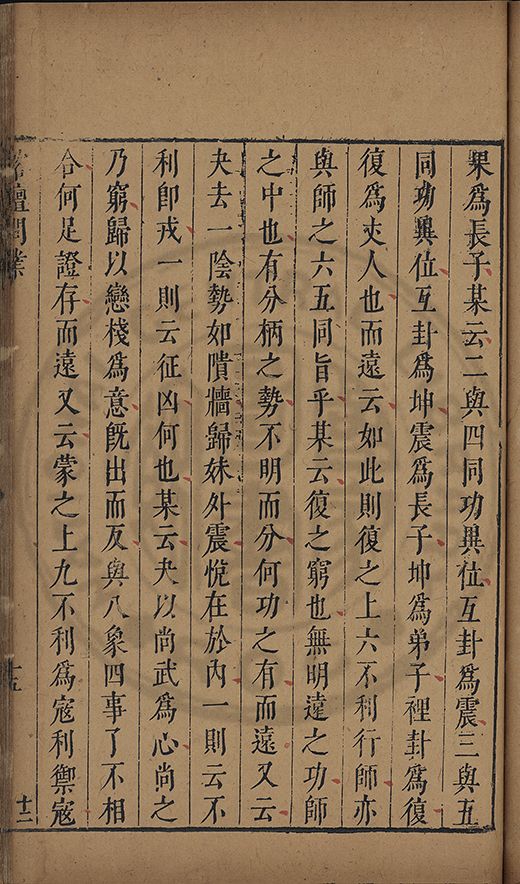 果爲長子某云二與四同功異位互卦爲震三與五
同功異位互卦爲坤震爲長子坤爲弟子裡卦爲復
復爲丈人也而遠云如此則復之上六不利行師亦
與師之六五同旨乎某云復之窮也無明遠之功師
之中也有分柄之勢不明而分何功之有而遠又云
夬去一陰勢如隤牆歸妹外震悅在於內一則云不
利卽戎一則云征凶何也某云夬以尚武爲心尚之
乃窮歸以戀棧爲意旣出而反與八象四事了不相
合何足證存而遠又云蒙之上九不利爲寇利禦寇
榕壇問業
十五
十二